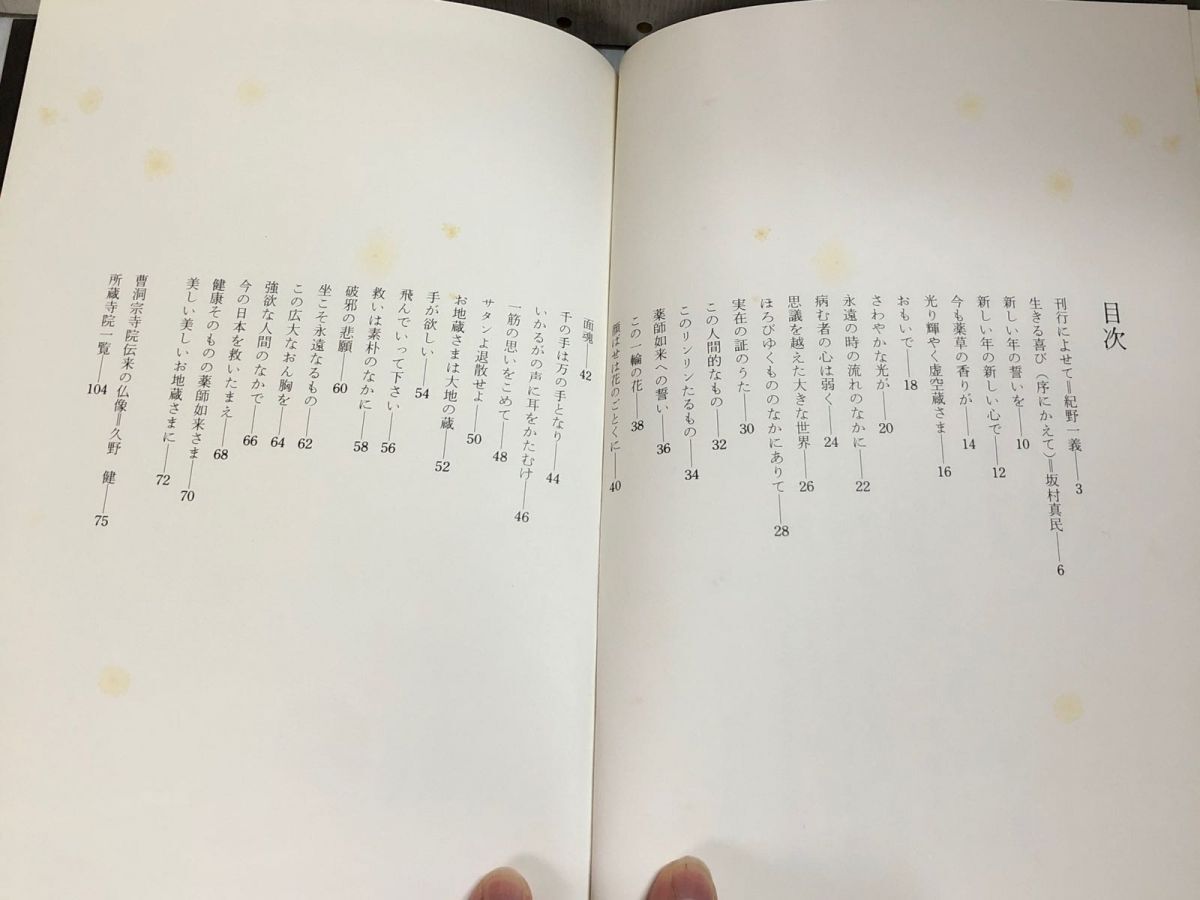 目次
刊行によせて=紀野一義――3
生きる喜び（序にかえて）=坂村真民――6
新しい年の誓いを――10
新しい年の新しい心で――12
今も薬草の香りが――14
光り輝やく虚空蔵さま――16
おもいで――18
さわやかな光が――20
永遠の時の流れのなかに――22
病む者の心は弱く――24
思議を越えた大きな世界――26
ほろびゆくもののなかにありて――28
実在の証のうた――30
この人間的なもの――32
このリンリンたるもの――34
薬師如来への誓い――36
この一輪の花――38
顔ばせは花のごとくに――40
面魂――42
千の手は万の手となり――44
いかるがの声に耳をかたむけ――46
一筋の思いをこめて――48
サタンよ退散せよ――50
お地蔵さまは大地の蔵――52
手が欲しい――54
飛んでいって下さい――56
救いは素朴のなかに――58
破邪の悲願――60
坐こそ永遠なるもの――62
この広大なおん胸を――64
強欲な人間のなかで――66
今の日本を救いたまえ――68
健康そのものの薬師如来さま――70
美しい美しいお地蔵さまに――72
曹洞宗寺院伝来の仏像=久野 健――75
所蔵寺院一覧――104